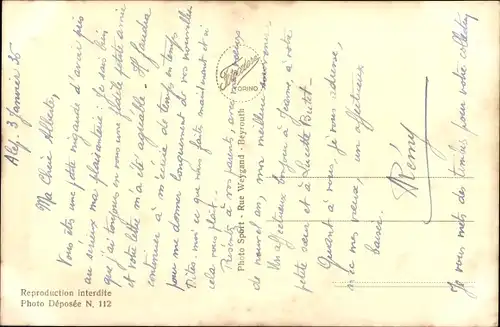 Alep, 3 Janvier 36
Ma Chère Alberte,
Vous êtes une petite nigaude d'avoir pris
au sérieux ma plaisanterie. Je sais bien
que j'ai toujours en vous une fidèle petite amie
et votre lettre m'a été agréable - Il faudra
continuer à m'écrire de temps en temps
pour me donner longuement de vos nouvelles
Dites-moi ce que vous faites maintenant et si
cela vous plaît.
Présentez à vos parents, avec mes vœux
de nouvel an, mon meilleur souvenir -
Un affectueux bonjour à Jeanne, à votre
petite sœur et à Lucette
Quant à vous, je vous adresse,
avec mes vœux, un affectueux
baiser.
Rémy
Je vous mets des timbres pour votre collection
Photo Sport - Rue Weygand - Beyrouth
TORINO
Reproduction interdite
Photo Déposée N. 112